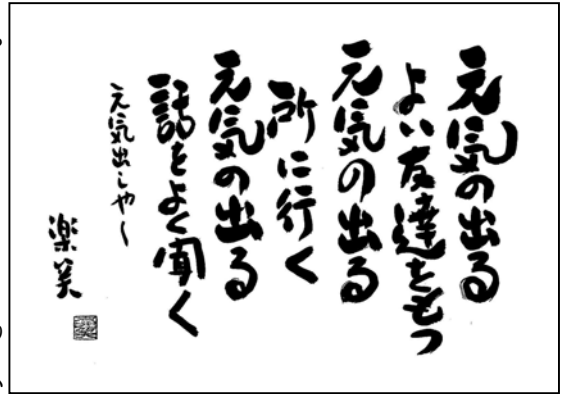 元気の出る
よい友達をもつ
元気の出る
所に行く
元気の出る
話をよく聞く
元気出しや〜
楽笑